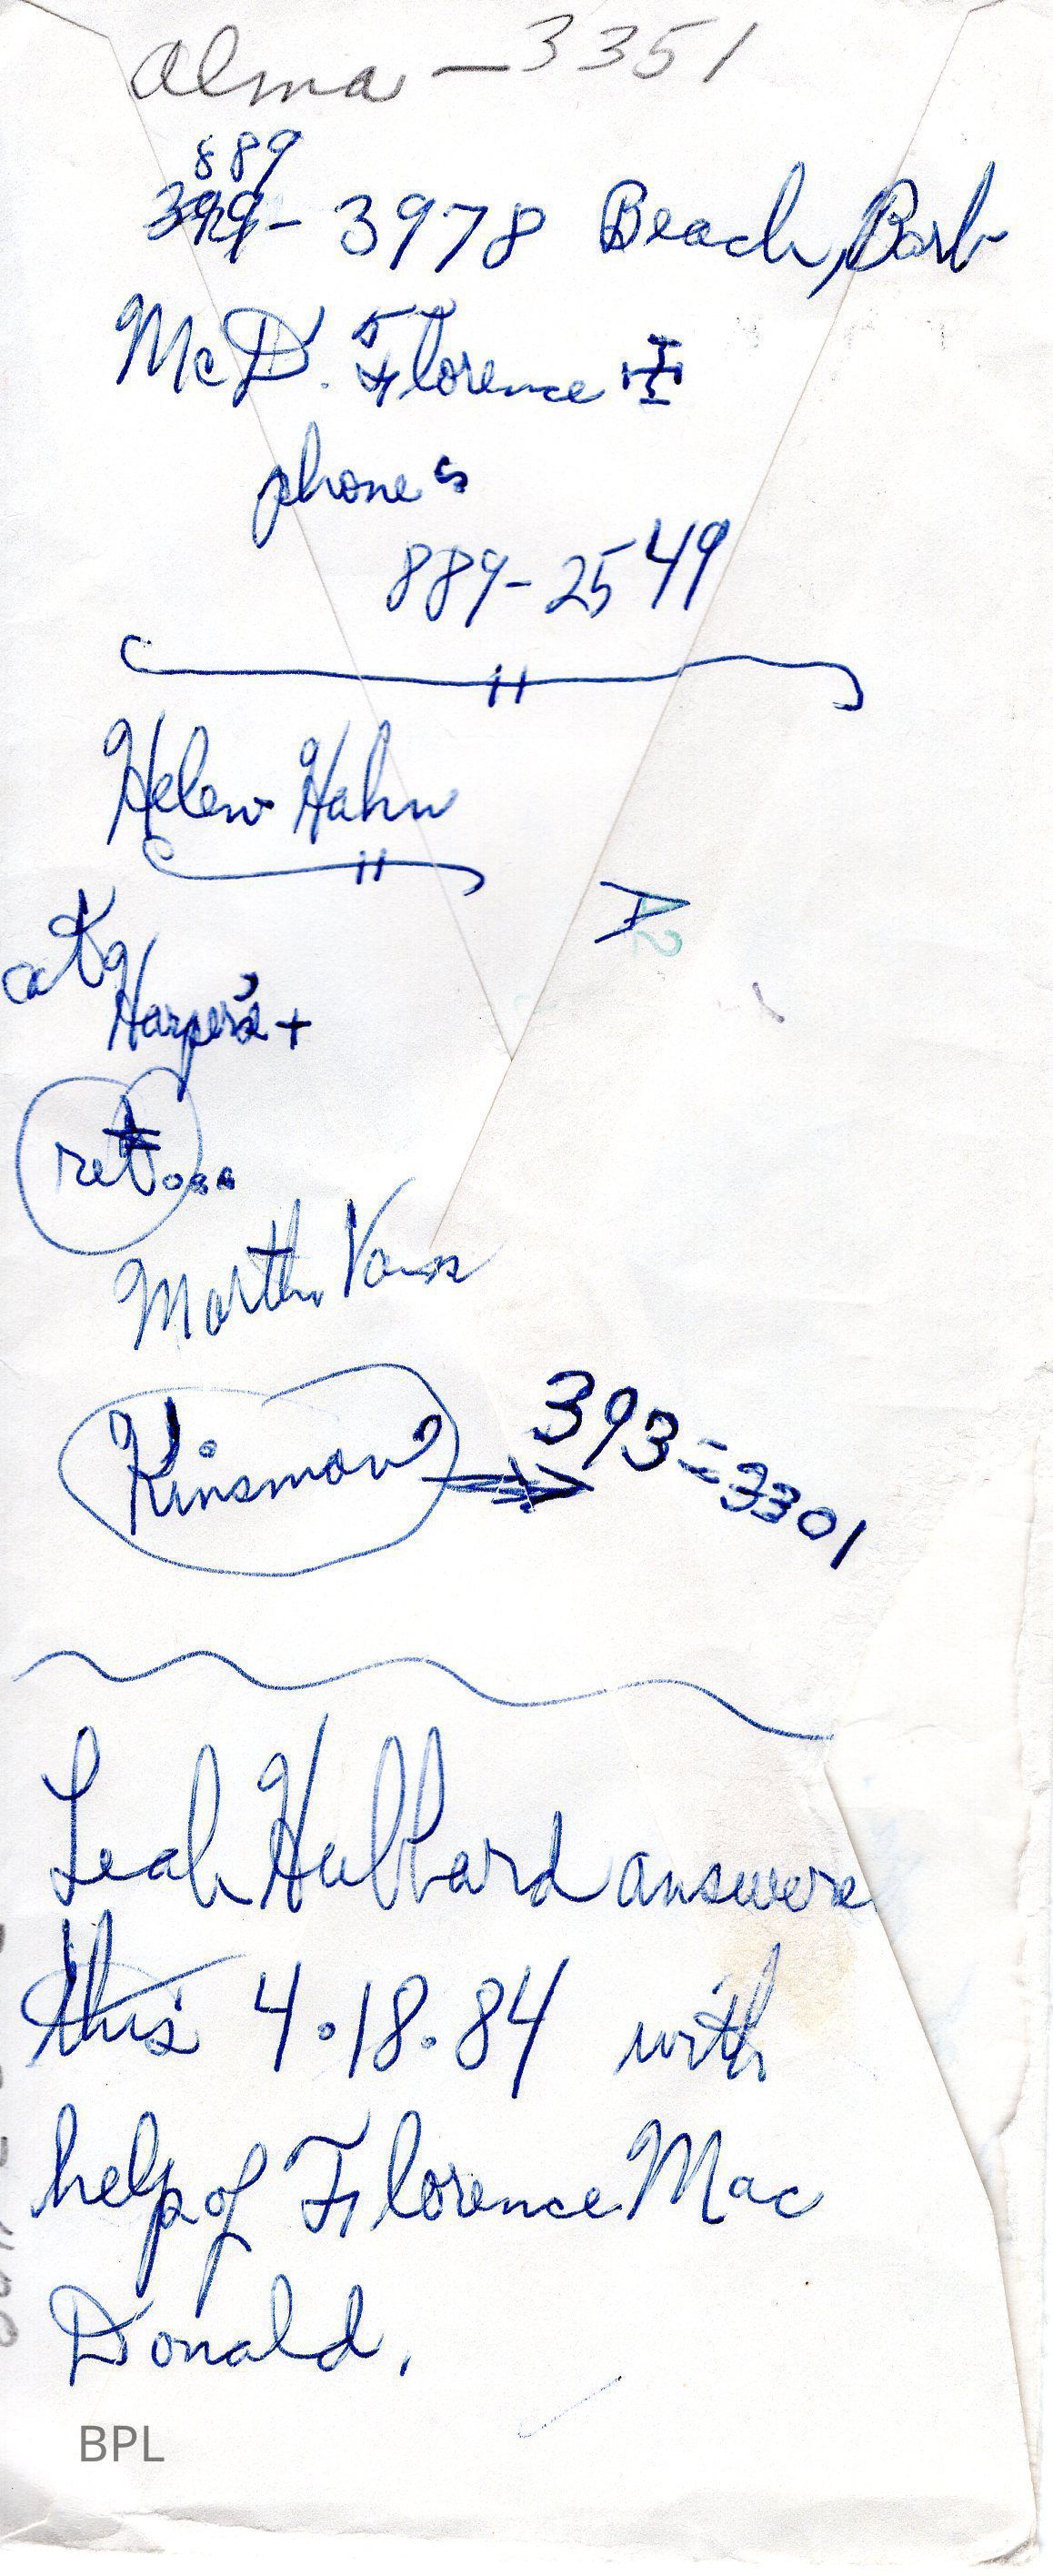 Alma — 3351
889
399- 3978 Beach, Barb
McD. Florence
phones
889-2549
Helen Hahn
at
Harper's +
ret...
Kinsman → 393-3301
Leah Hubbard answers
this 4.18.84 with
help of Florence Mac
Donald.
BPL